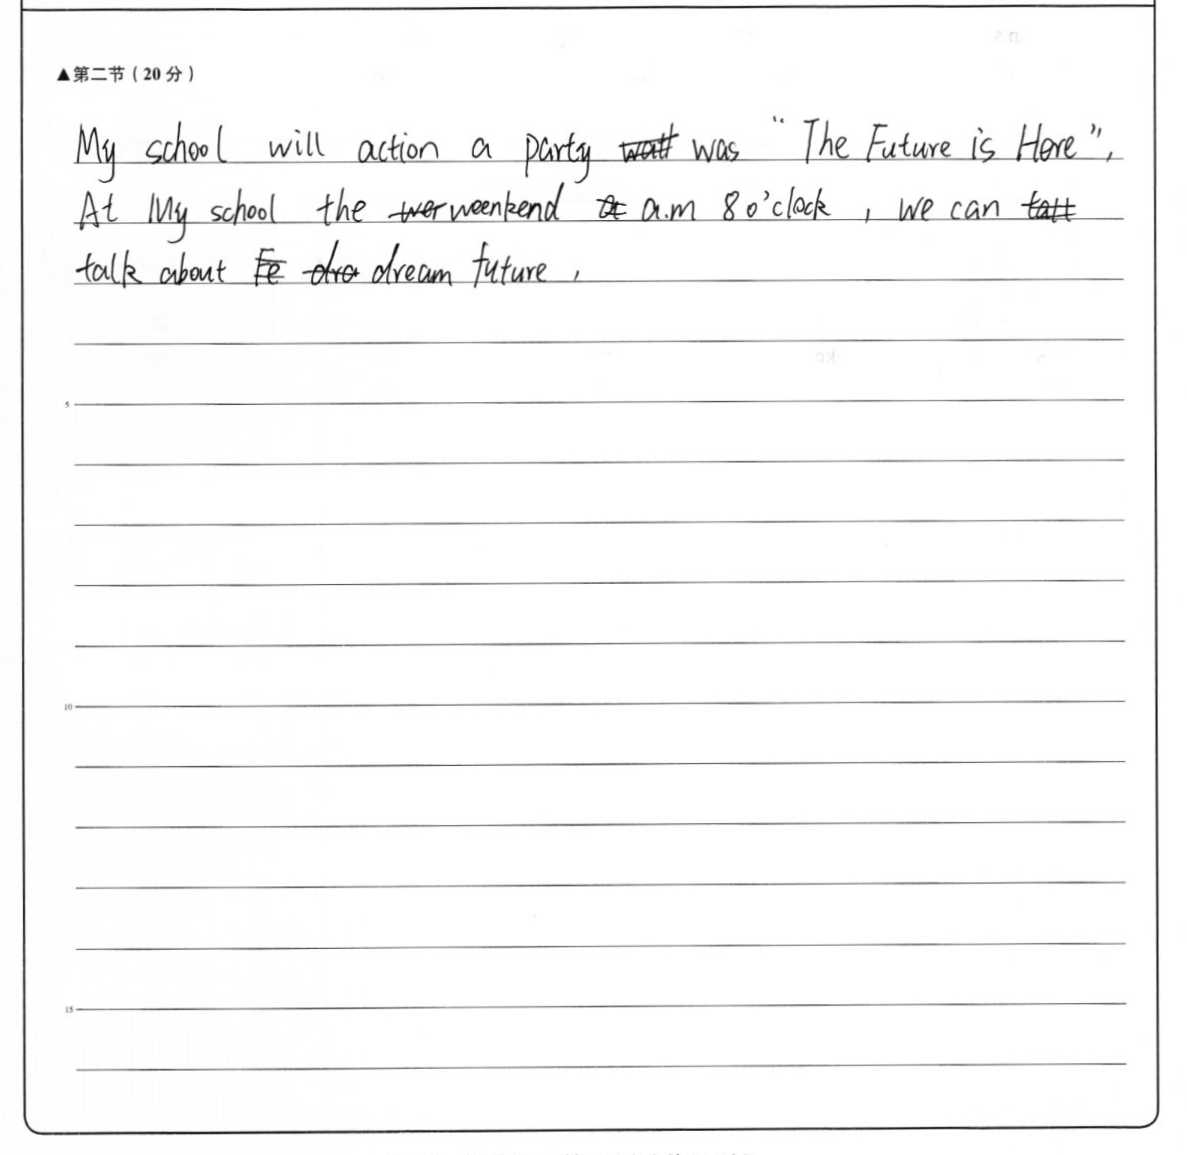 ▲第二节（20 分）
My school will action a party was “The Future is Here”,
At My school the weenkend a.m 8 o'clock , we can
talk about dream future ,
5
10
15